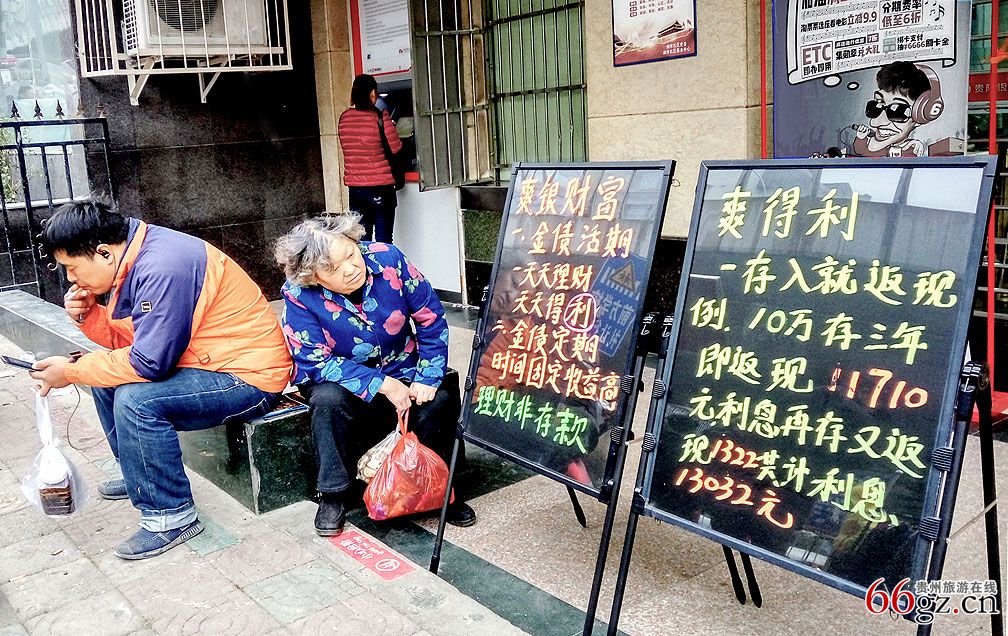 爽银财富
一.金债活期
一天天理财
天天得利
二.金债定期
时间固定收益高
理财非存款
爽得利
一存入就返现
例.10万存三年
即返现11710
元利息再存又返
现1322共计利息、
13032元
分期费率
立减9.9
低至6折
ETC
即办即用
贵州旅游在线
66gz.cn